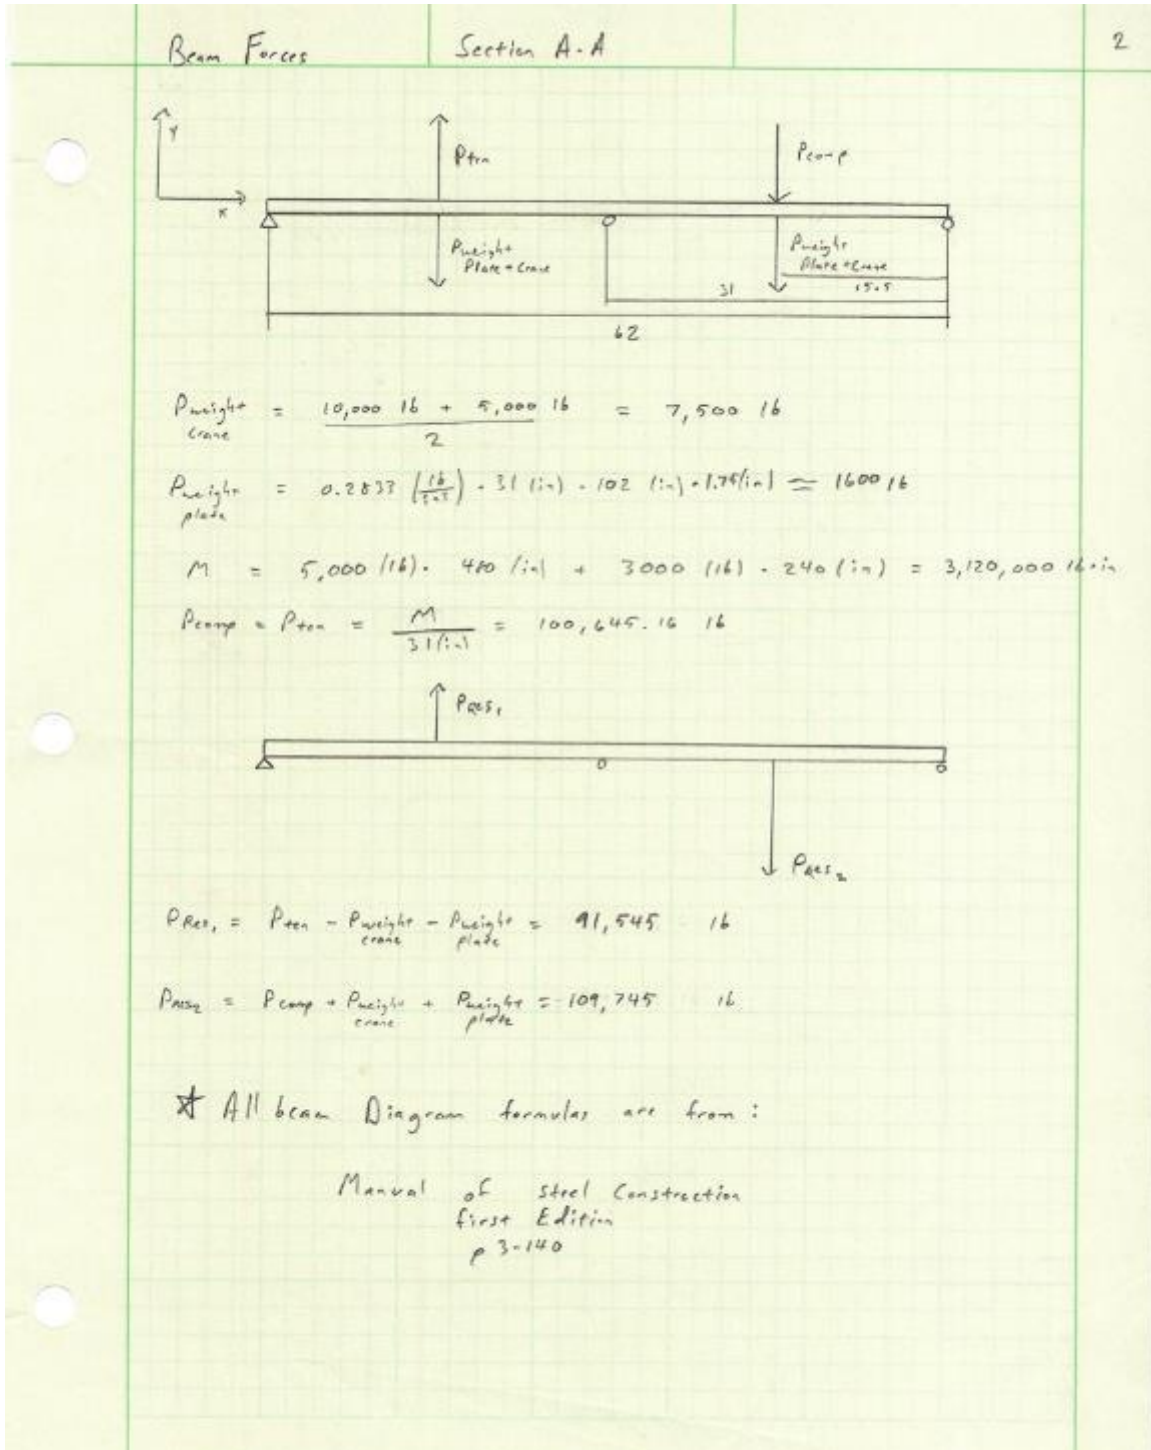 Beam Forces Section A-A 2
Y
Pten Pcomp
x
Pweight Pweight
Plate + Crane Plate + Crane
31 15.5
62
Pweight crane = (10,000 lb + 5,000 lb) / 2 = 7,500 lb
Pweight plate = 0.2833 (lb/in3) · 31 (in) · 102 (in) · 1.75(in) ≃ 1600 lb
M = 5,000 (lb) · 480 (in) + 3000 (lb) · 240 (in) = 3,120,000 lb·in
Pcomp = Pten = M / 31(in) = 100,645.16 lb
PRES1
PRES2
PRes1 = Pten - Pweight crane - Pweight plate = 91,545 lb
PRES2 = Pcomp + Pweight crane + Pweight plate = 109,745 lb
☆ All beam Diagram formulas are from:
Manual of steel Construction
first Edition
p 3-140